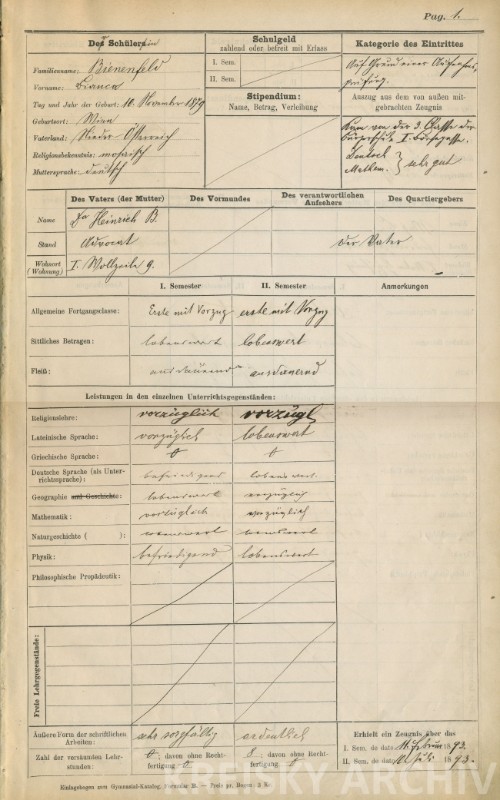 Pag. 1.
Des Schülersin
Familienname: Bienenfeld
Vorname: Bianca
Tag und Jahr der Geburt: 10. November 1879
Geburtsort: Wien
Vaterland: Nieder-Österreich
Religionsbekenntnis: mosaisch
Muttersprache: deutsch
Schulgeld
zahlend oder befreit mit Erlass
I. Sem.
II. Sem.
Stipendium:
Name, Betrag, Verleihung
Kategorie des Eintrittes
Auf Grund einer Aufnahms-
prüfung.
Auszug aus dem von außen mit-
gebrachten Zeugnis
Kam von der 3. Classe der
Bürgerschule I.
Deutsch
Mathem. } sehr gut
Des Vaters (der Mutter) Des Vormundes Des verantwortlichen Aufsehers Des Quartiergebers
Name Dr Heinrich B.
Stand Advocat der Vater
Wohnort (Wohnung) I. Wollzeile 9.
I. Semester II. Semester Anmerkungen
Allgemeine Fortgangsclasse: Erste mit Vorzug erste mit Vorzug
Sittliches Betragen: lobenswert lobenswert
Fleiß: ausdauernd ausdauernd
Leistungen in den einzelnen Unterrichtsgegenständen:
Religionslehre: vorzüglich vorzügl
Lateinische Sprache: vorzüglich lobenswert
Griechische Sprache:
Deutsche Sprache (als Unter-
richtssprache): befriedigend lobenswert
Geographie und Geschichte: lobenswert vorzüglich
Mathematik: vorzüglich vorzüglich
Naturgeschichte ( ): lobenswert lobenswert
Physik: befriedigend lobenswert
Philosophische Propädeutik:
Freie Lehrgegenstände:
Äußere Form der schriftlichen
Arbeiten: sehr sorgfältig ordentlich
Zahl der versäumten Lehr-
stunden: 0, davon ohne Recht-
fertigung 0 0, davon ohne Recht-
fertigung 0
Erhielt ein Zeugnis über das
I. Sem. de dato Februar 1893.
II. Sem. de dato Juli 1893.
Einlagebogen zum Gymnasial-Katalog, Formular B. — Preis pr. Bogen
KREISKY ARCHIV